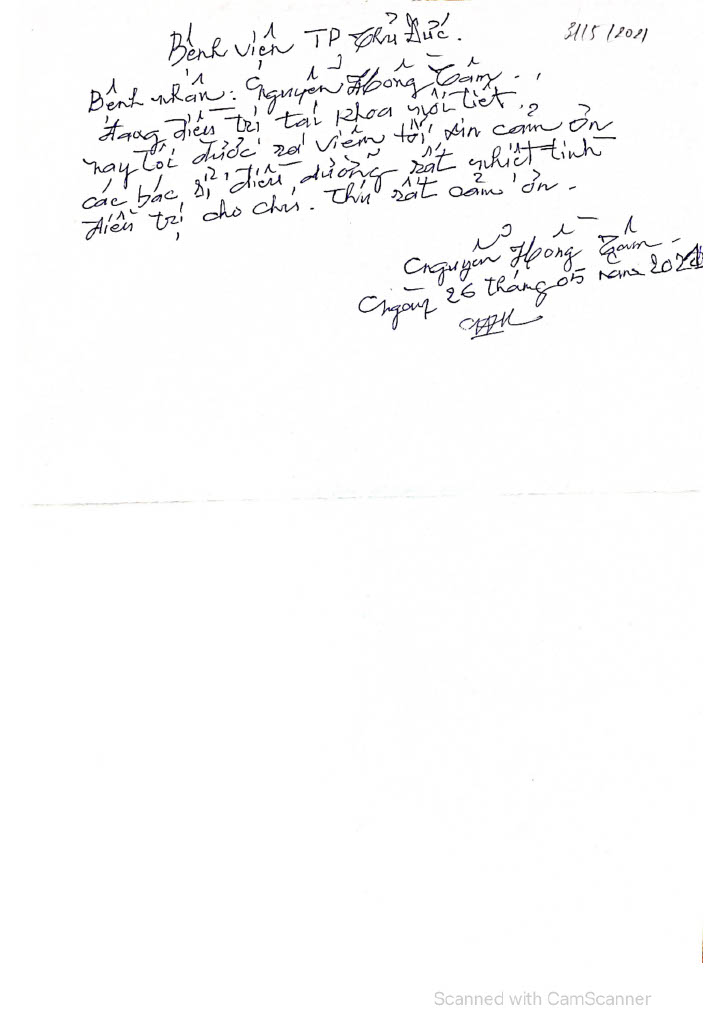 31/5/2021
Bệnh viện TP Thủ Đức.
Bệnh nhân: Nguyễn Hồng Tâm.
đang điều trị tại khoa nội tiết.
nay tôi được ra viện tôi xin cảm ơn
các bác sĩ, điều dưỡng rất nhiệt tình
điều trị cho chú. Chú rất cảm ơn.
Nguyễn Hồng Tâm
Ngày 26 tháng 05 năm 2021
Scanned with CamScanner